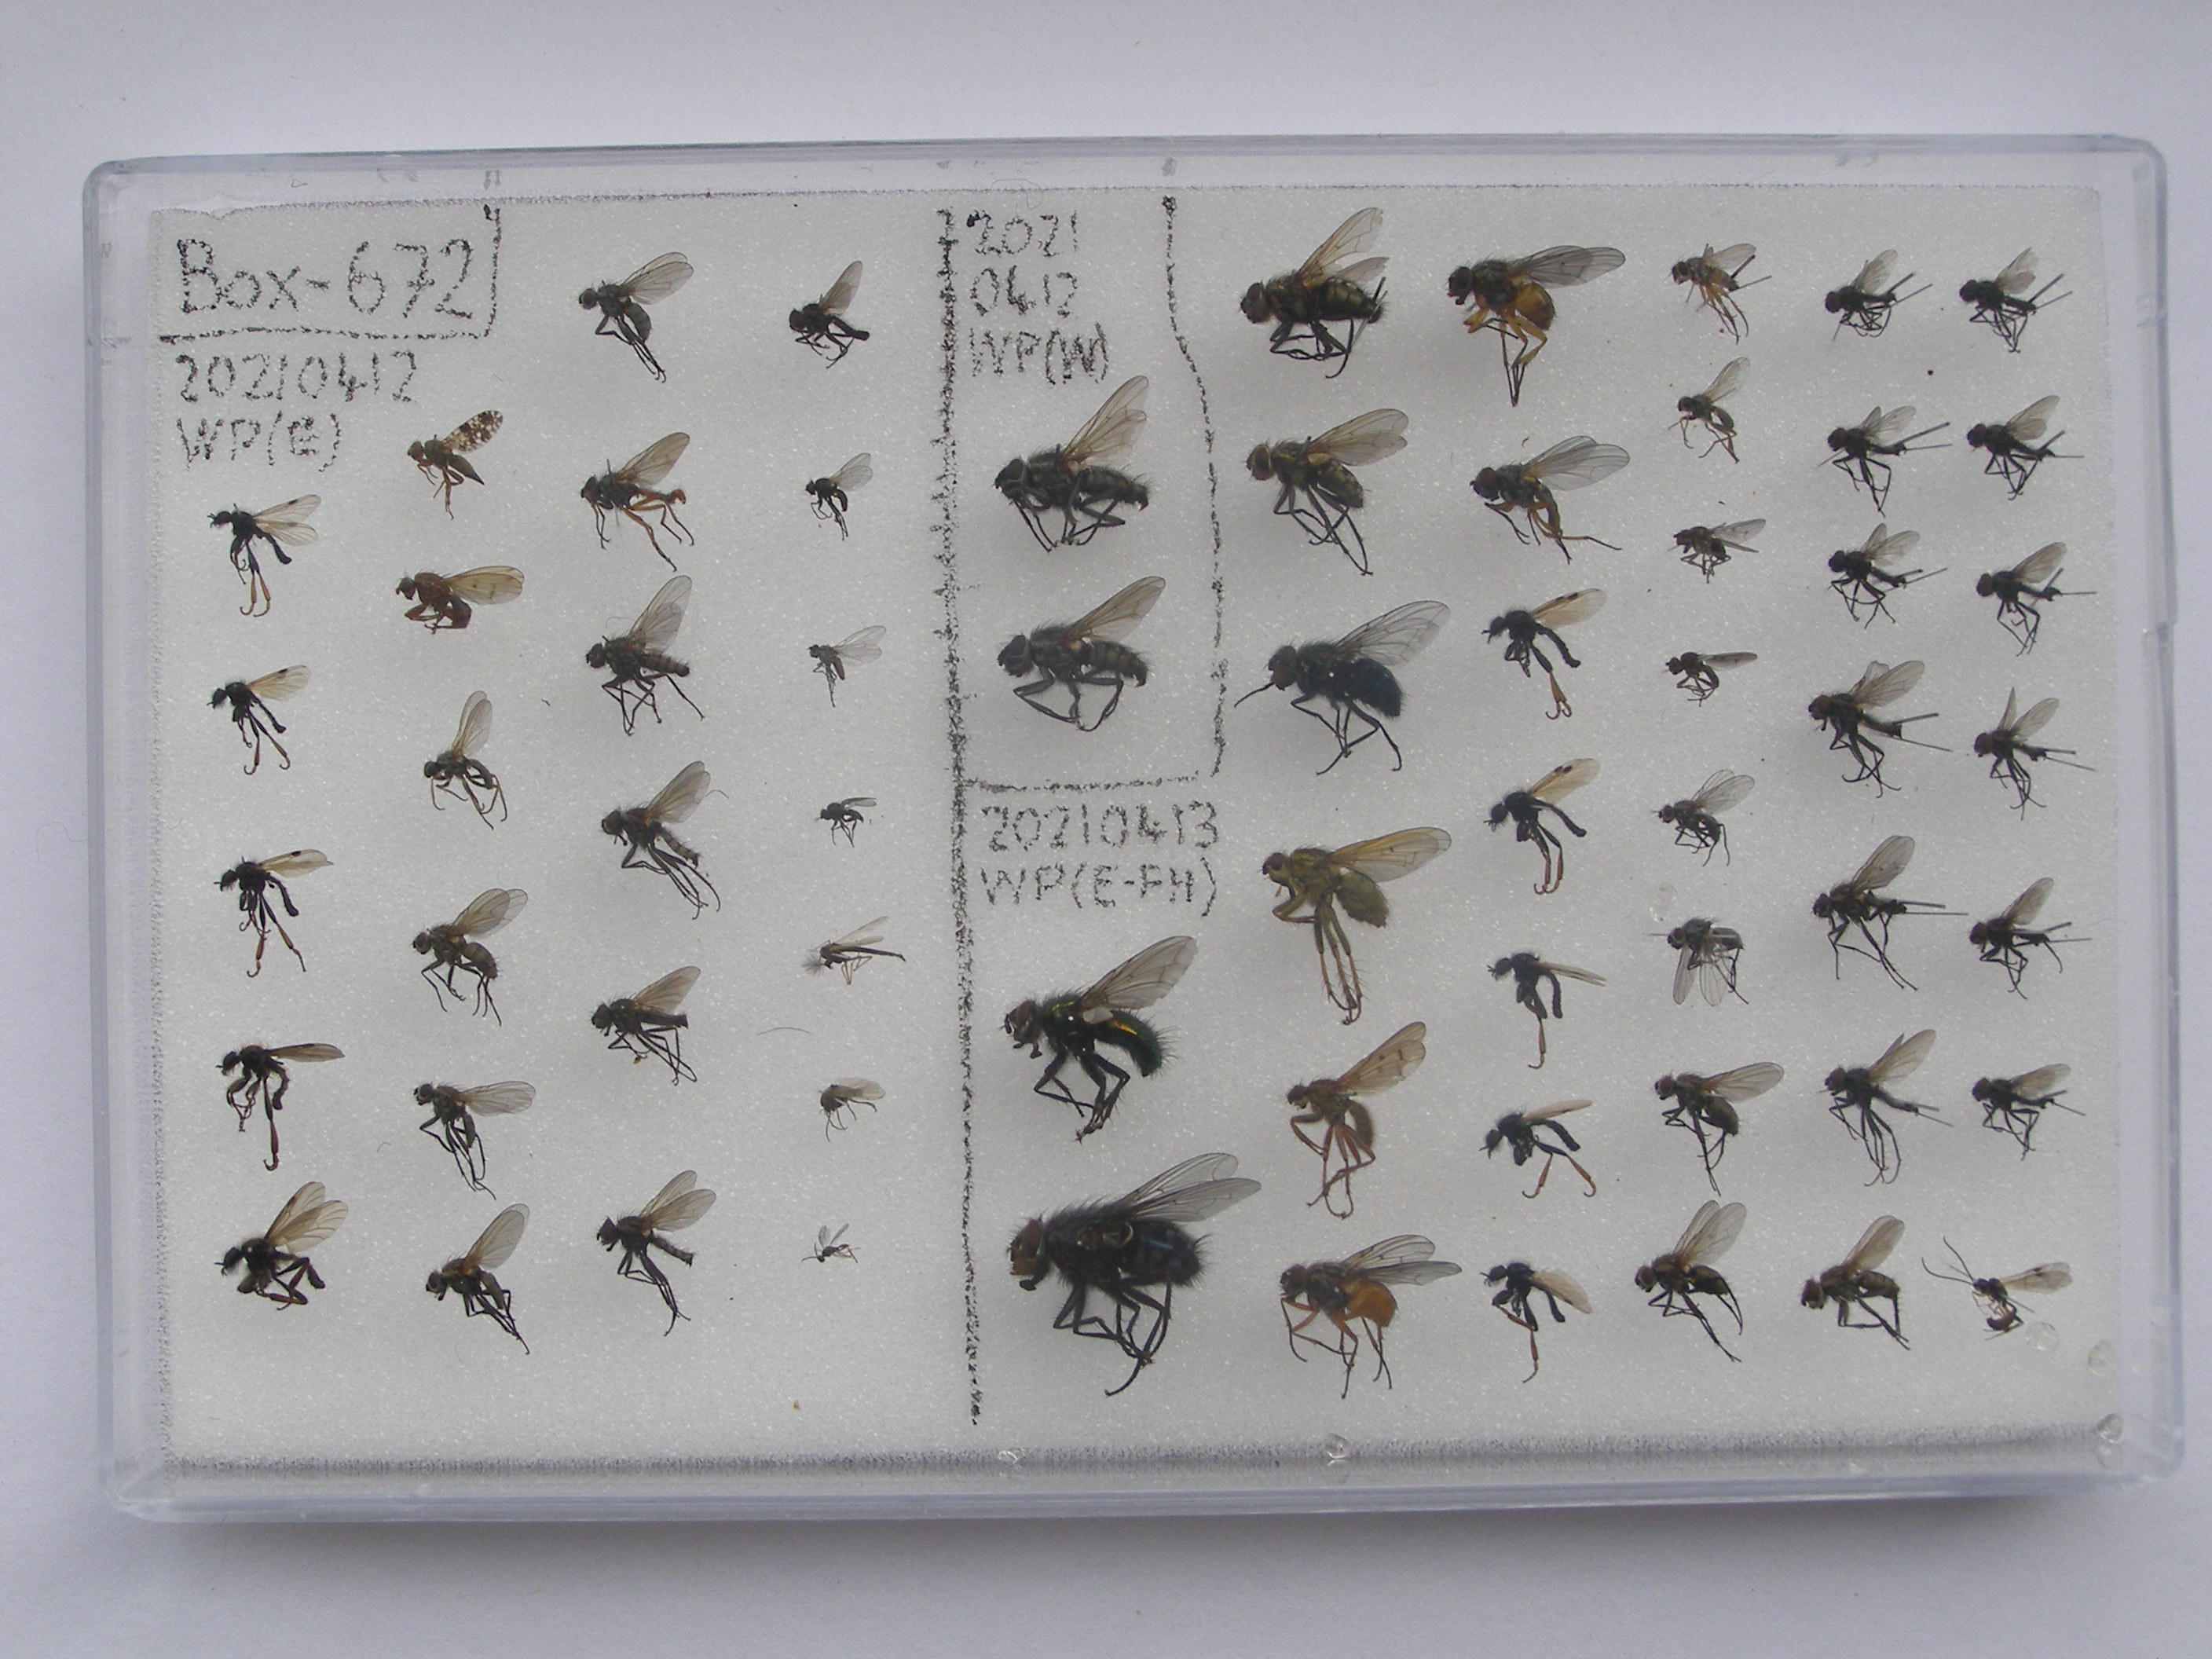 Box-672
20210412
WP(E)
2021
0412
WP(W)
20210413
WP(E-FH)